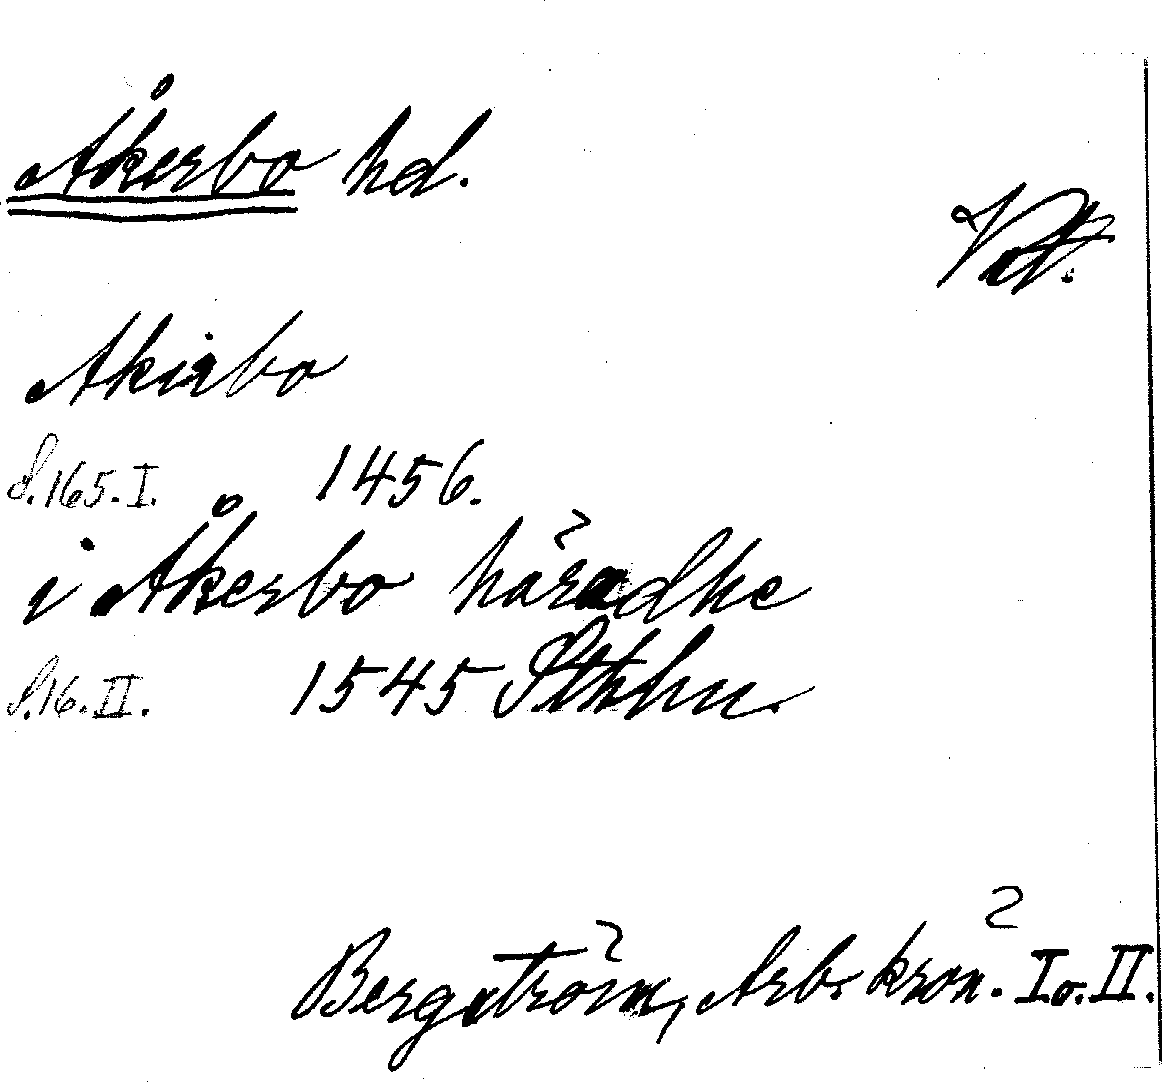 Åkerbo hd.
Vstm.
Akirbo
S. 165. I. 1456.
i Åkerbo häradhe
S. 16. II. 1545 Sthlm.
Bergström, Arb. krön. I o. II.